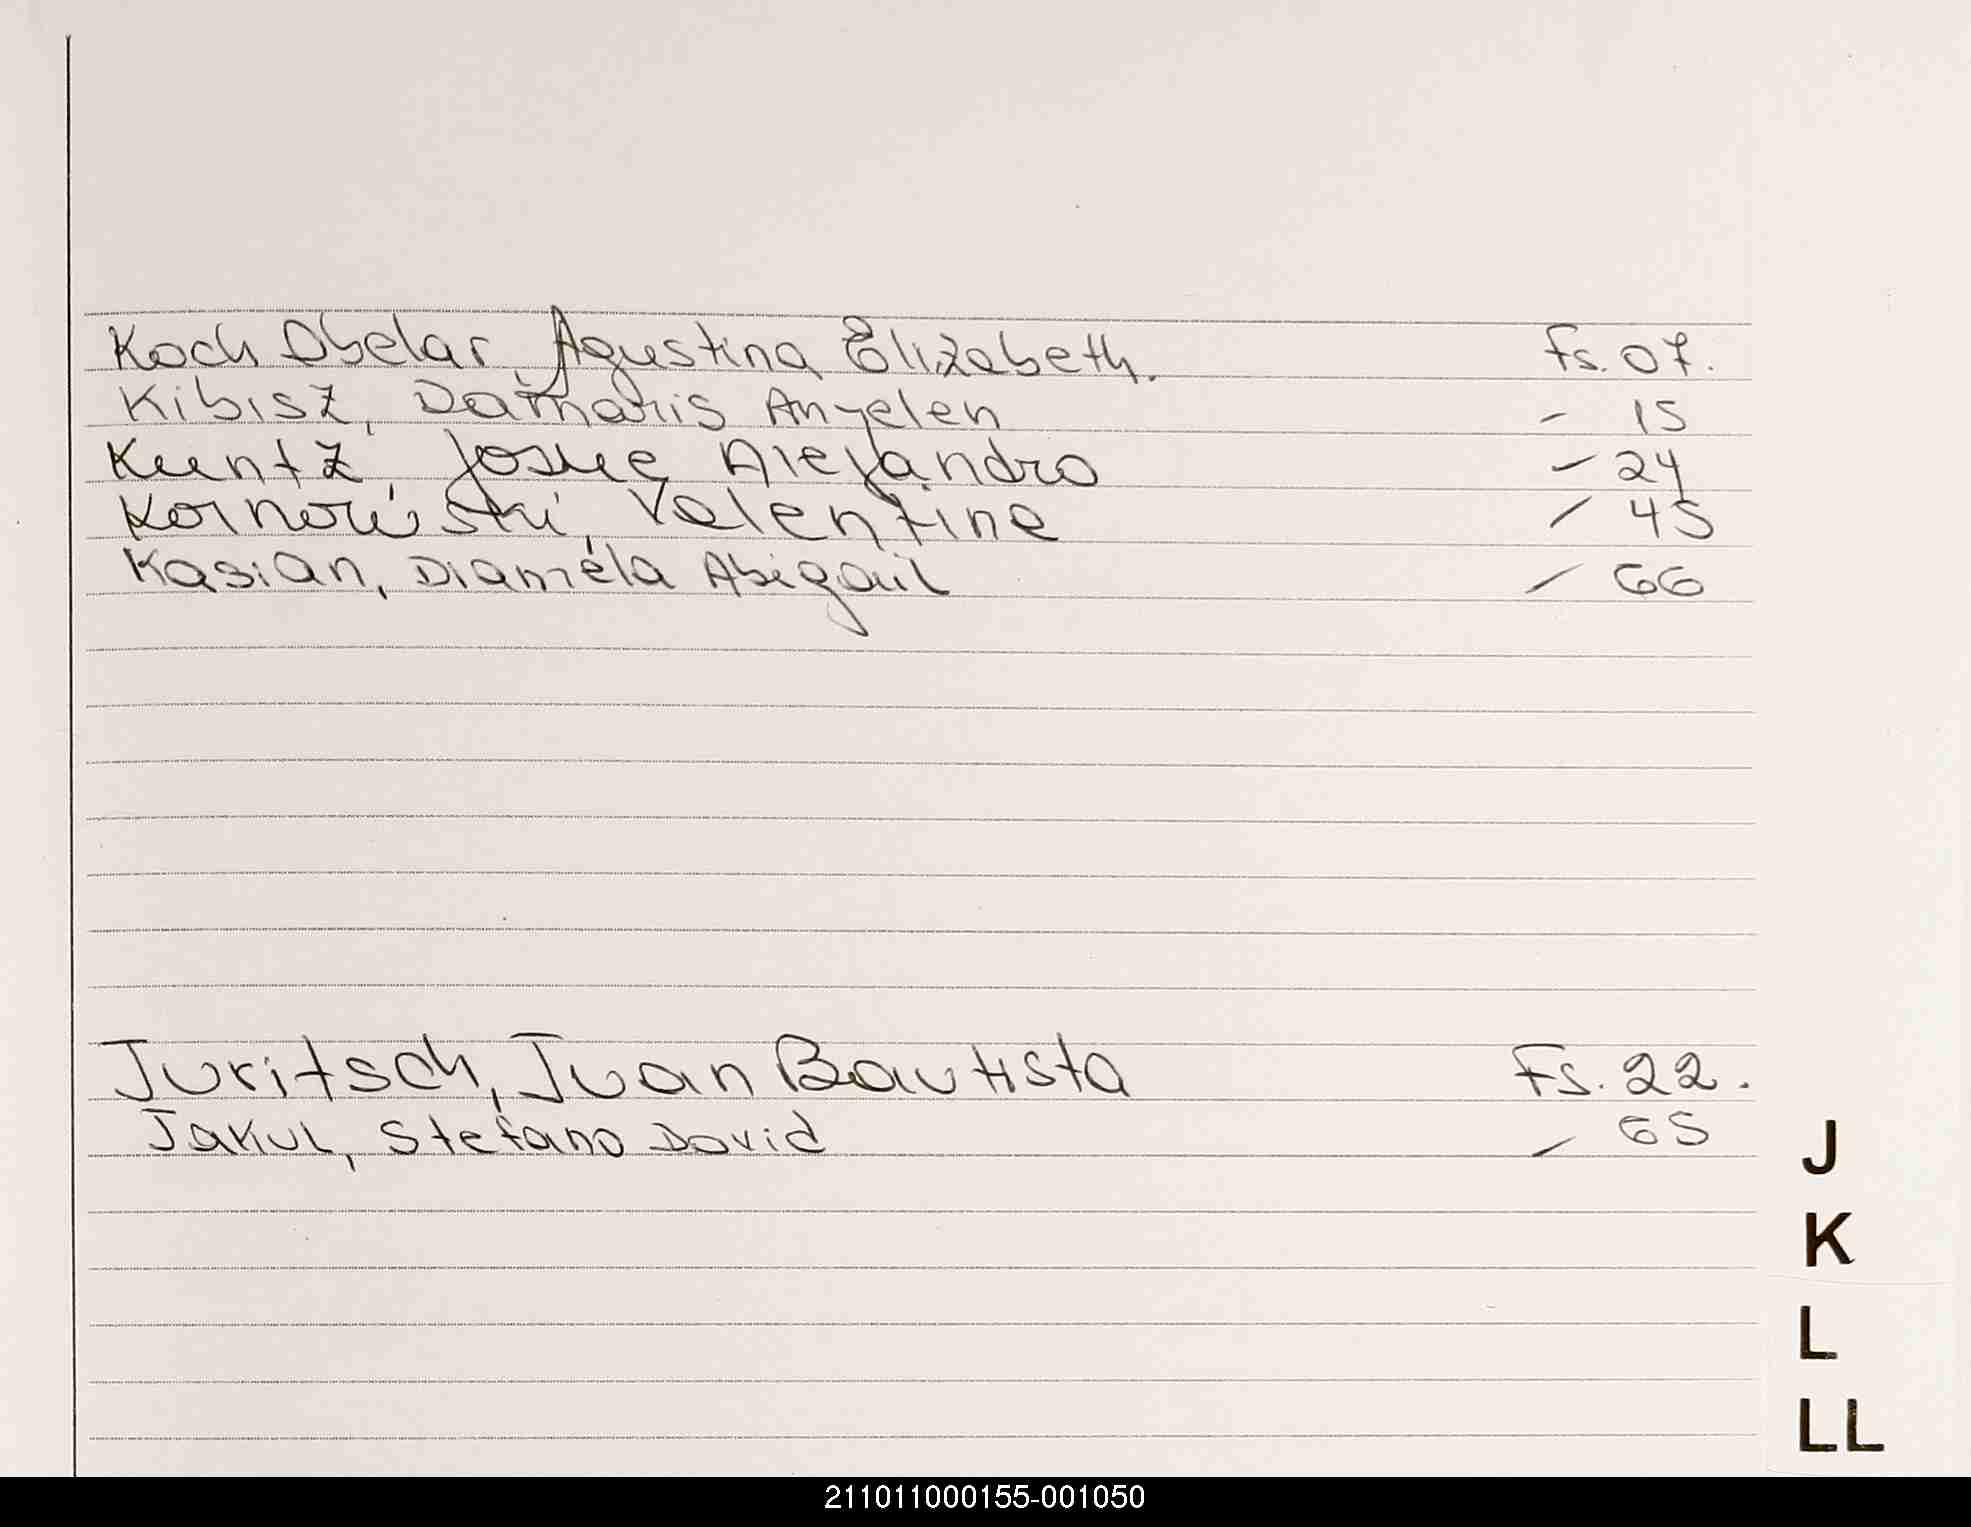 Koch Obelar, Agustina Elizabeth. Fs. 07.
Kibisz, Damaris Anyelen - 15
Kuntz, Josue Alejandro - 24
Kornowiski, Valentine - 45
Kasian, Diamela Abigail - 66
Juritsch, Juan Bautista Fs. 22.
Jakul, Stefano David - 65
J
K
L
LL
211011000155-001050